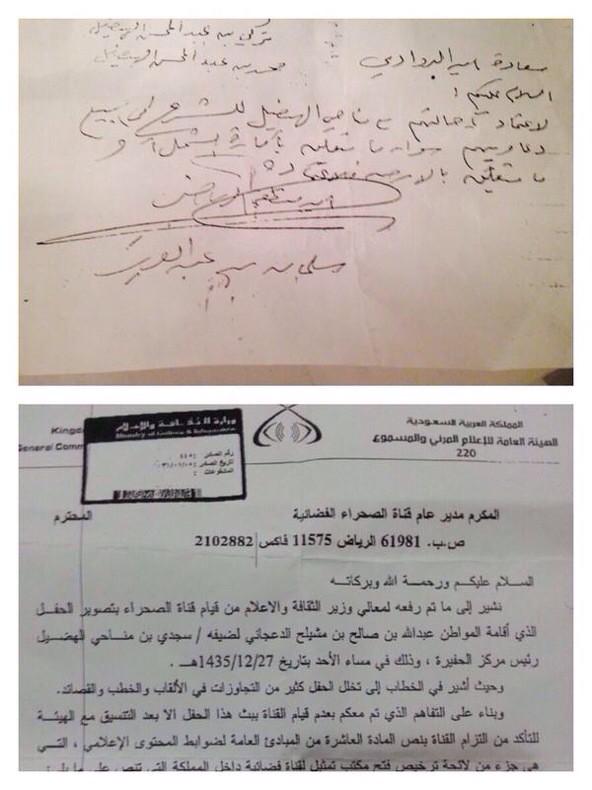 تركي بن عبدالمحسن الهضيل
محمد بن عبدالمحسن الهضيل
سعادة امير البوادي
السلام عليكم
لاعتماد مناحي الهضيل للشرع جميع
دعاويهم سواء ما متعلق بأمارة
ما متعلق
سلمان بن عبدالعزيز
Kingd
General Comm
وزارة الثقافة والإعلام
Ministry of Culture & Information
رقم الصادر :
تاريخ الصادر :
المشفوعات :
المملكة العربية السعودية
الهيئة العامة للإعلام المرئي والمسموع
220
المكرم مدير عام قناة الصحراء الفضائية المحترم
ص.ب. 61981 الرياض 11575 فاكس 2102882
السلام عليكم ورحمة الله وبركاته
نشير إلى ما تم رفعه لمعالي وزير الثقافة والاعلام من قيام قناة الصحراء بتصوير الحفل
الذي أقامة المواطن عبدالله بن صالح بن مشيلح الدعجاني لضيفه / سجدي بن مناحي الهضيل
رئيس مركز الحفيرة ، وذلك في مساء الأحد بتاريخ 1435/12/27هـ .
وحيث أشير في الخطاب إلى تخلل الحفل كثير من التجاوزات في الألقاب والخطب والقصائد.
وبناء على التفاهم الذي تم معكم بعدم قيام القناة ببث هذا الحفل الا بعد التنسيق مع الهيئة
للتأكد من التزام القناة بنص المادة العاشرة من المبادئ العامة لضوابط المحتوى الإعلامي ، التي
هي جزء من لائحة ترخيص فتح مكتب تمثيل لقناة فضائية داخل المملكة التي تنص على ما يلي: